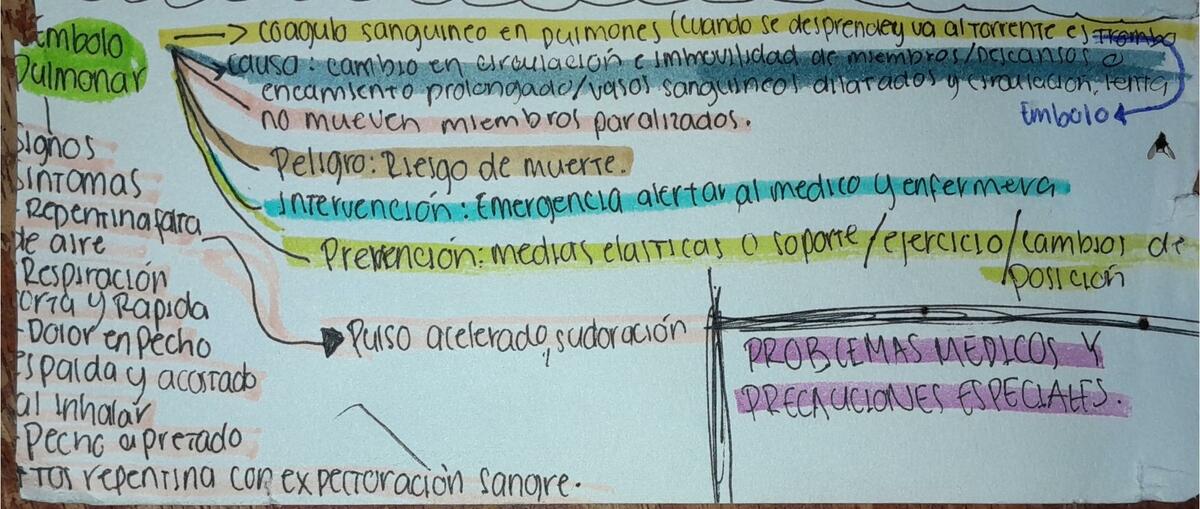 Embolo
Pulmonar
→ coagulo sanguineo en pulmones (cuando se desprende y va al torrente es trombo
Embolo
causa: cambio en circulación e immovilidad de miembros/descansos o
encamiento prolongado/vasos sanguineos dilatados y circulación; lenta
no mueven miembros paralizados.
Peligro: Riesgo de muerte.
Intervención: Emergencia alertar al medico y enfermera
Prevención: medias elasticas o soporte/ejercicio/cambios de
posición
signos
sintomas
- Repentina falta
de aire
Respiración
corta y Rapida
- Dolor en pecho
Espalda y acostado
al inhalar
- Pecho apretado
+ Tos repentina con expectoración sangre.
Pulso acelerado, sudoración
PROBLEMAS MEDICOS Y
PRECAUCIONES ESPECIALES.